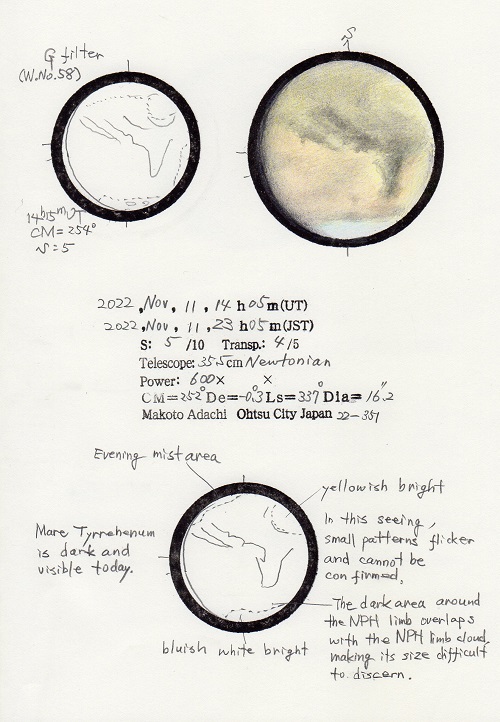 G filter
(W.No.58)
S
14h15mUT
CM=254°
S=5
2022,Nov, 11, 14h05m(UT)
2022,Nov, 11, 23h05m(JST)
S: 5 /10 Transp.: 4/5
Telescope: 35.5cm Newtonian
Power: 600× ×
CM=252° De=-0.3° Ls=337° Dia=16".2
Makoto Adachi Ohtsu City Japan 22-351
Evening mist area
yellowish bright
Mare Tyrrehenum
is dark and
visible today.
In this seeing,
small patterns flicker
and cannot be
confirmed.
The dark area around
the NPH limb overlaps
with the NPH limb cloud,
making its size difficult
to discern.
bluish white bright